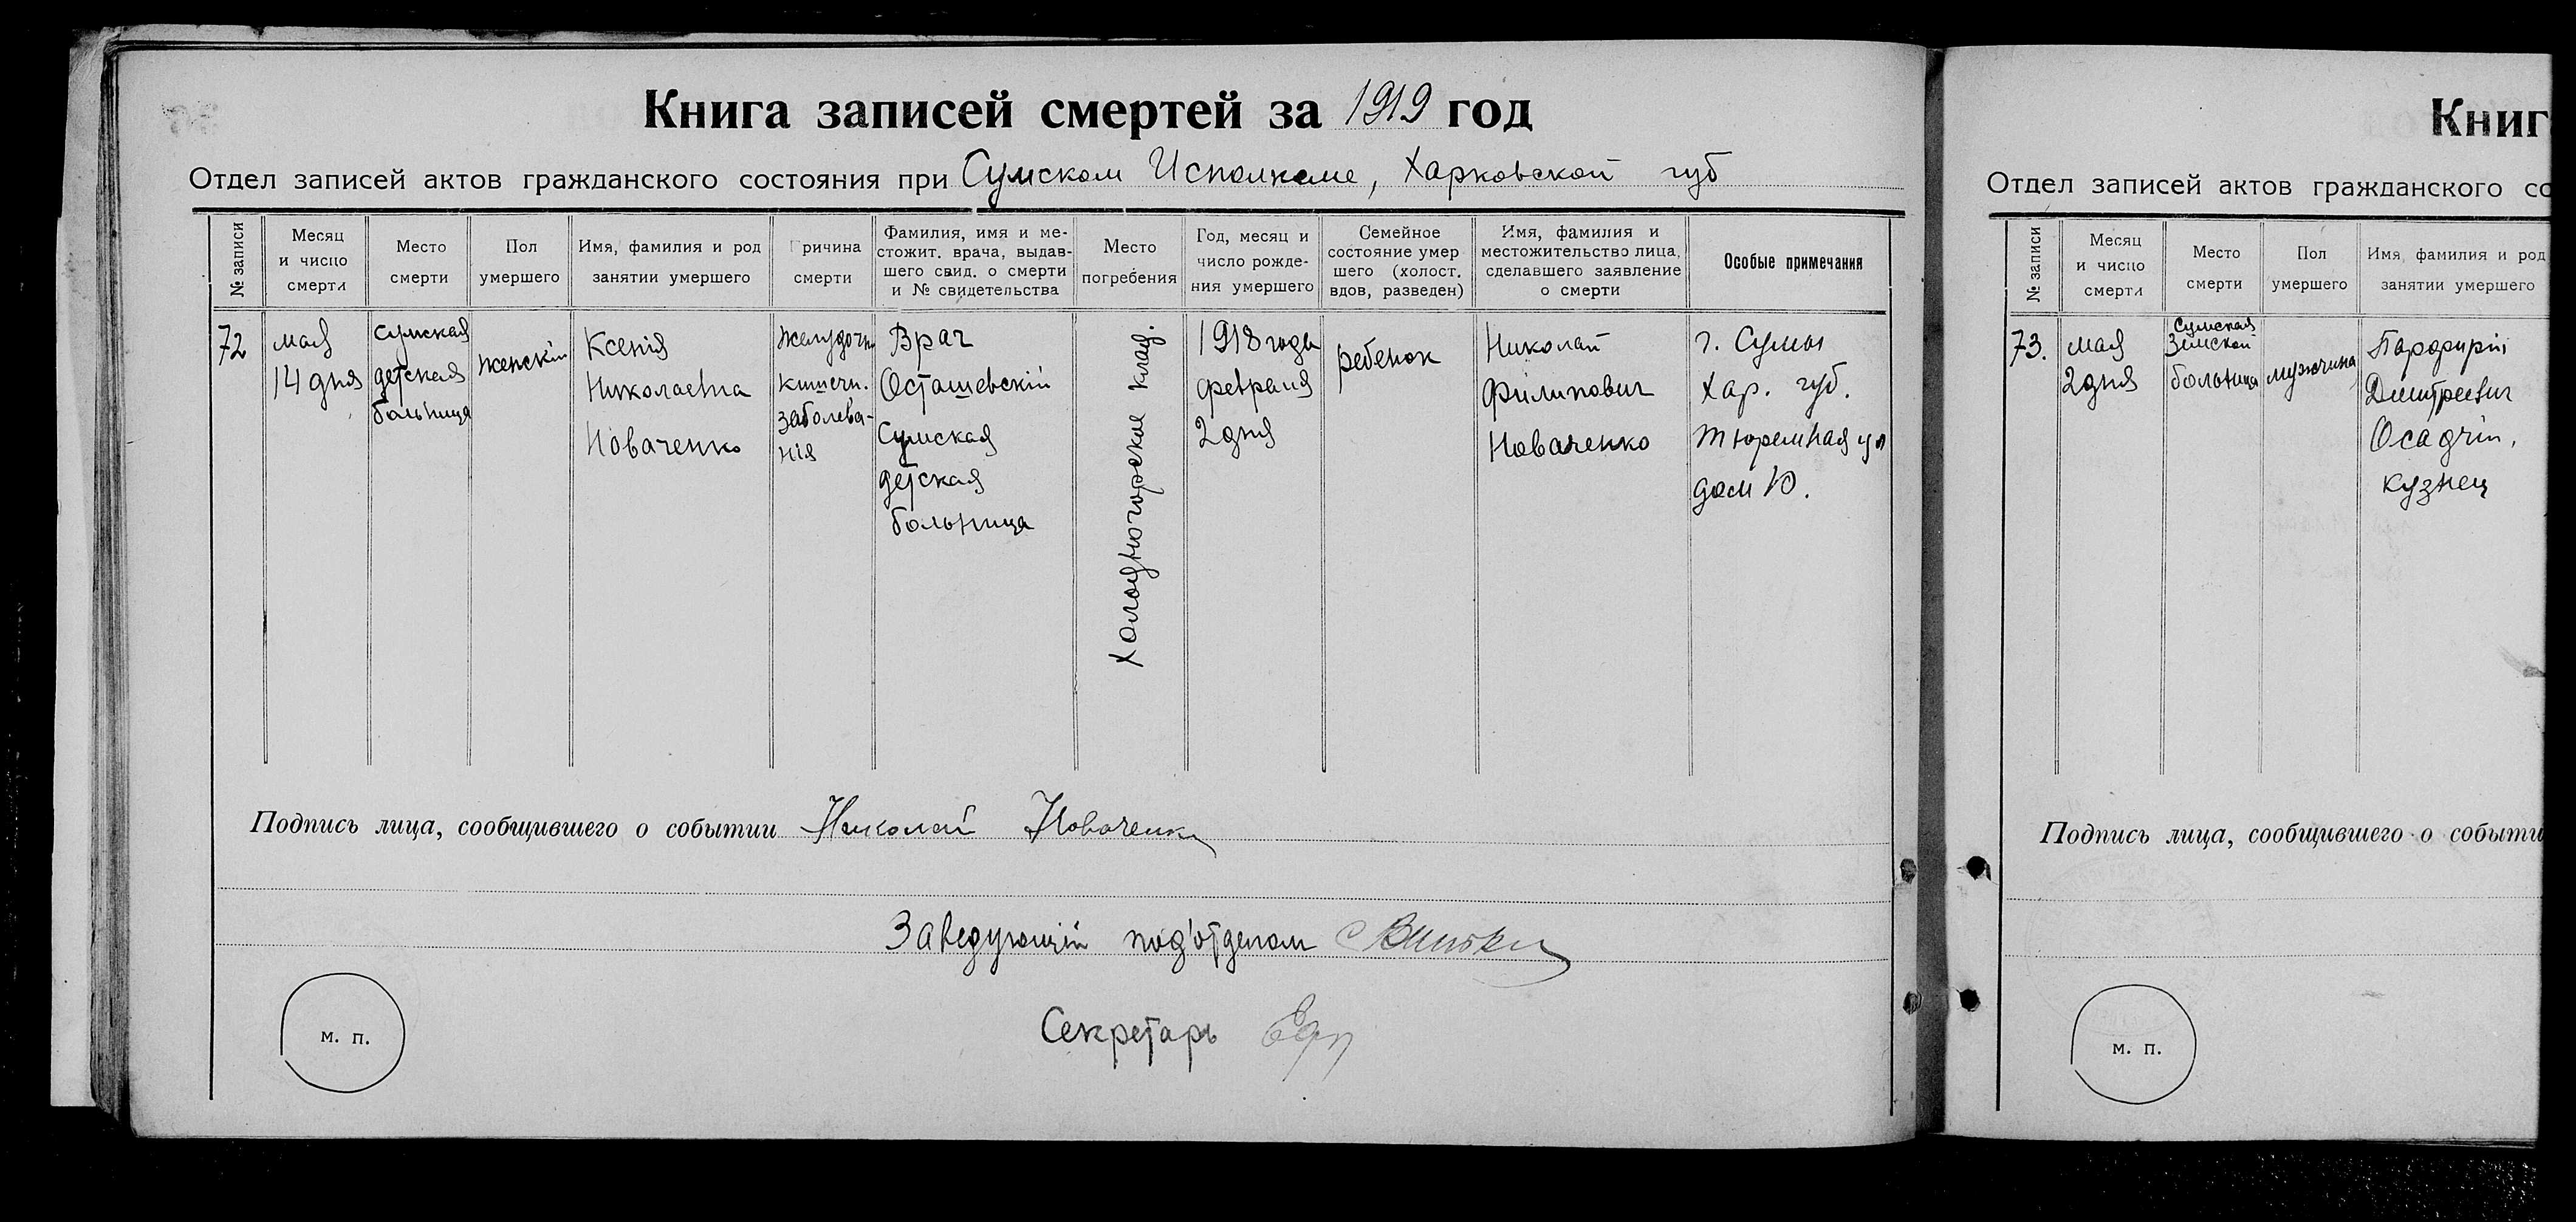 Книга записей смертей за 1919 год
Отдел записей актов гражданского состояния при Сумском Исполкоме, Харковской губ
№ записи
Месяц
и чисцо
смерти
Место
смерти
Пол
умершего
Имя, фамилия и род
занятии умершего
Причина
смерти
Фамилия, имя и ме-
стожит. врача, выдав-
шего свид. о смерти
и № свидетельства
Место
погребения
Год, месяц и
число рожде-
ния умершего
Семейное
состояние умер
шего (холост.
вдов, разведен)
Имя, фамилия и
местожительство лица,
сделавшего заявление
о смерти
Особые примечания
72
мая
14 дня
сумская
детская
больница
женскій
Ксенія
Николаевна
Новаченко
желудочн
кишечн.
заболева-
нія
Врач
Осташевскій
Сумская
детская
больница
Холодногорское клад.
1918 года
февраля
2 дня
ребенок
Николай
Филипович
Новаченко
г. Сумы
Хар. губ.
Тюремная ул
дом 10.
Подпись лица, сообщившего о событии Николай Новаченко
Заведующій под'отделом
Секретарь
м. п.
Книг
Отдел записей актов гражданского со
№ записи
Месяц
и чисцо
смерти
Место
смерти
Пол
умершего
Имя, фамилия и род
занятии умершего
73.
мая
2 дня
Сумская
Земской
больница
мужчина
Парфирій
Дмитревич
Осадчій,
кузнец
Подпись лица, сообщившего о событи
м. п.